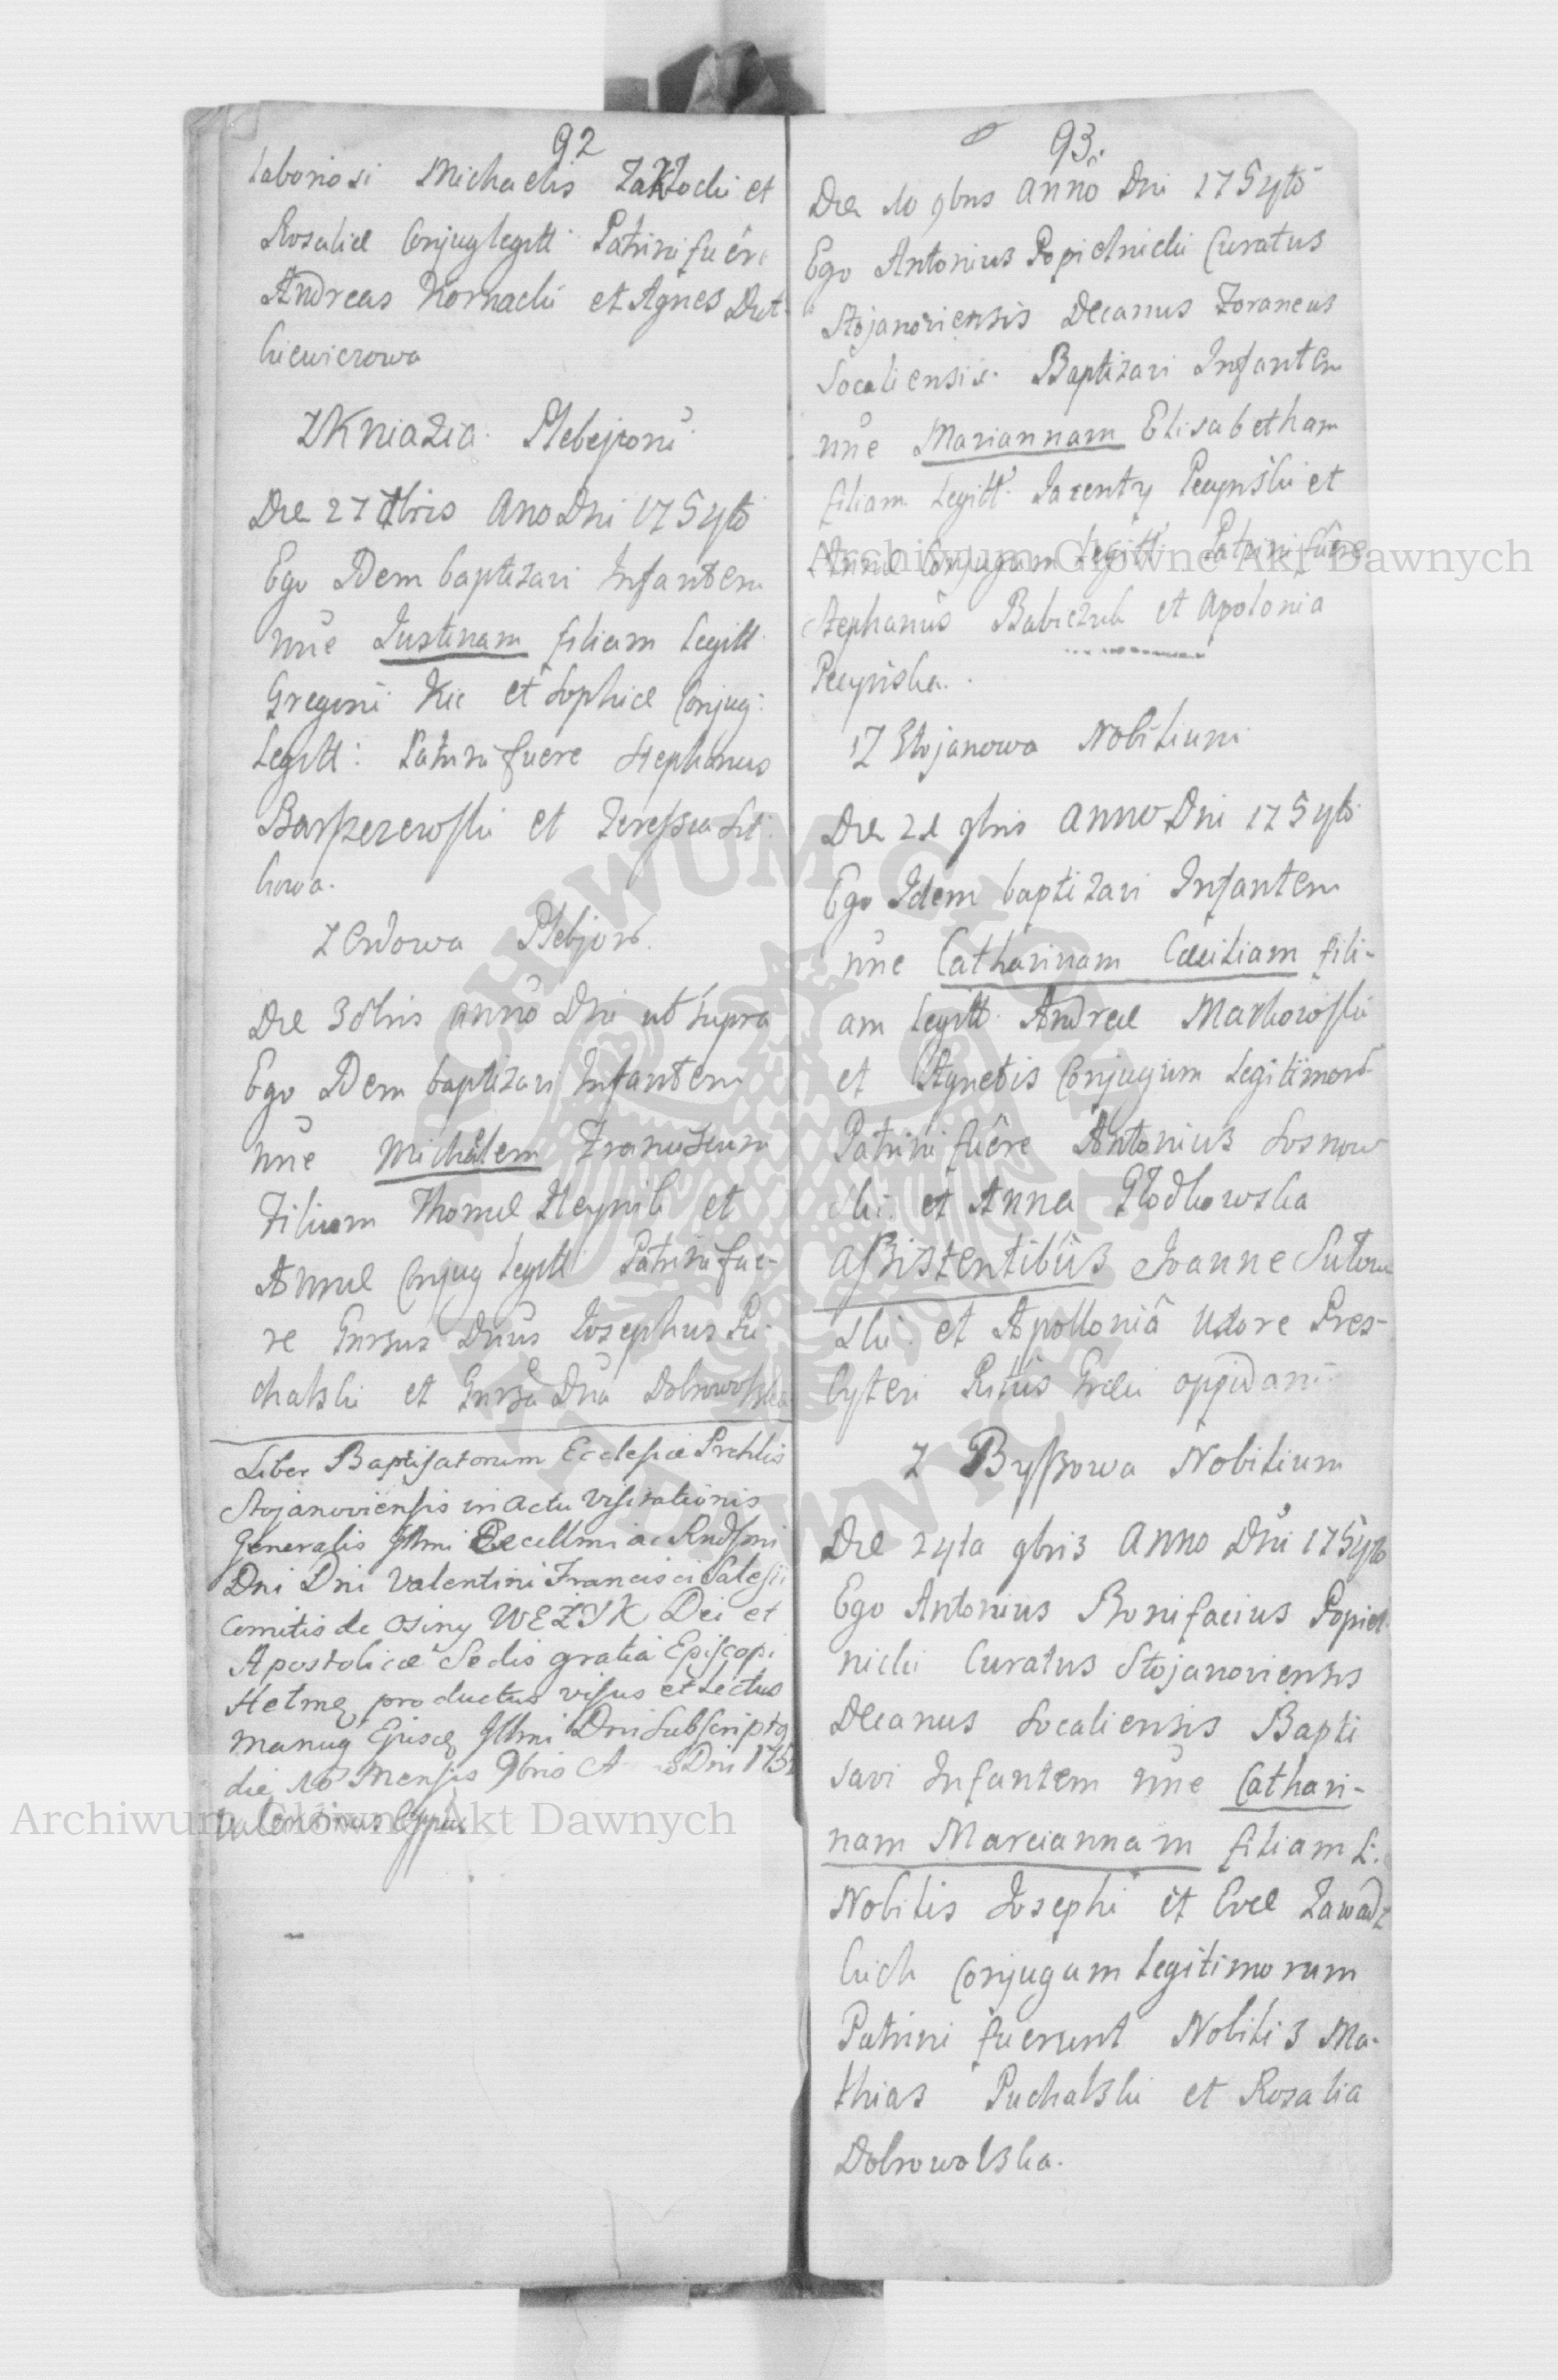 92
laboriosi Michaelis Zakłocki et
Rosaliæ Conjug legitt Patrini fuêre
Andreas Kornacki et Agnes Dut-
kiewiczowa
Z Kniazia. Plebejorũ
Die 27 Ano Dni 175yto
Ego Idem baptizavi Infantem
nũe Justinam filiam legitt
Gregorii Kic et Sophiæ Conjug:
Legitt: Patrini fuere Stephanus
et
kowa.
Plebjor
Die 3 8bris annô Dni ut supra
Ego Idem baptizavi Infantem
nũe Michãlem
Filium Thomæ et
Annæ Conjug legitt Patrini fue-
re Gnrsus Dnũs Josephus Pu-
chalski et Gnrsa Dna Dobrowolska
Liber Baptisatorum Ecclesiæ Prchlis
Stojanoviensis in actu Visitationis
Generalis Illmi Excellmi ac Rndssmi
Dni Dni Valentini Francisci Salesii
Comitis de Osiny WĘŻYK Dei et
Apostolicæ Sedis gratia Episcopi
productus visus et Lectus
Illmi Dni Subscripto
die 10 Mensis 9bris Dni 175
Valentinus Eppus
93.
Die 10 9bris annô Dni 175yto
Ego Antonius Popielnicki Curatus
Stojanoviensis Decanus Foraneus
Socaliensis. Baptizavi Infantem
nũe Mariannam Elisabetham
filiam Legitt. et
Annæ Conjugum Legitt. Patrini fuêre
Stephanus Babiczuk et Apolonia
Z Stojanowa Nobilium
Die 21 9bris anno Dni 175yto
Ego Idem baptizavi Infantem
nũe Catharinam Cæciliam fili-
am legitt. Andreæ Markowski
et Agnetis Conjugum Legitimor
Patrini fuêre Antonius Sosnow
ski. et Anna Głodkowska
assistentibus Joanne
ski. et Apolloniâ Uxore Pres-
byteri Ritûs Græci oppidani
Z Byszowa Nobilium
Die 24ta 9bris Anno Dni 175yto
Ego Antonius Bonifacius Popiel-
nicki Curatus Stojanoviensis
Decanus Socaliensis Bapti
savi Infantem nũe Cathari-
nam Mariannam filiam L.
Nobilis Josephi et Evæ Zawadz
kich Conjugum Legitimorum
Patrini fuerunt Nobilis Ma-
thias Puchalski et Rosalia
Dobrowolska.
Archiwum Główne Akt Dawnych
Archiwum Główne Akt Dawnych
ARCHIWUM GŁÓWNE AKT DAWNYCH